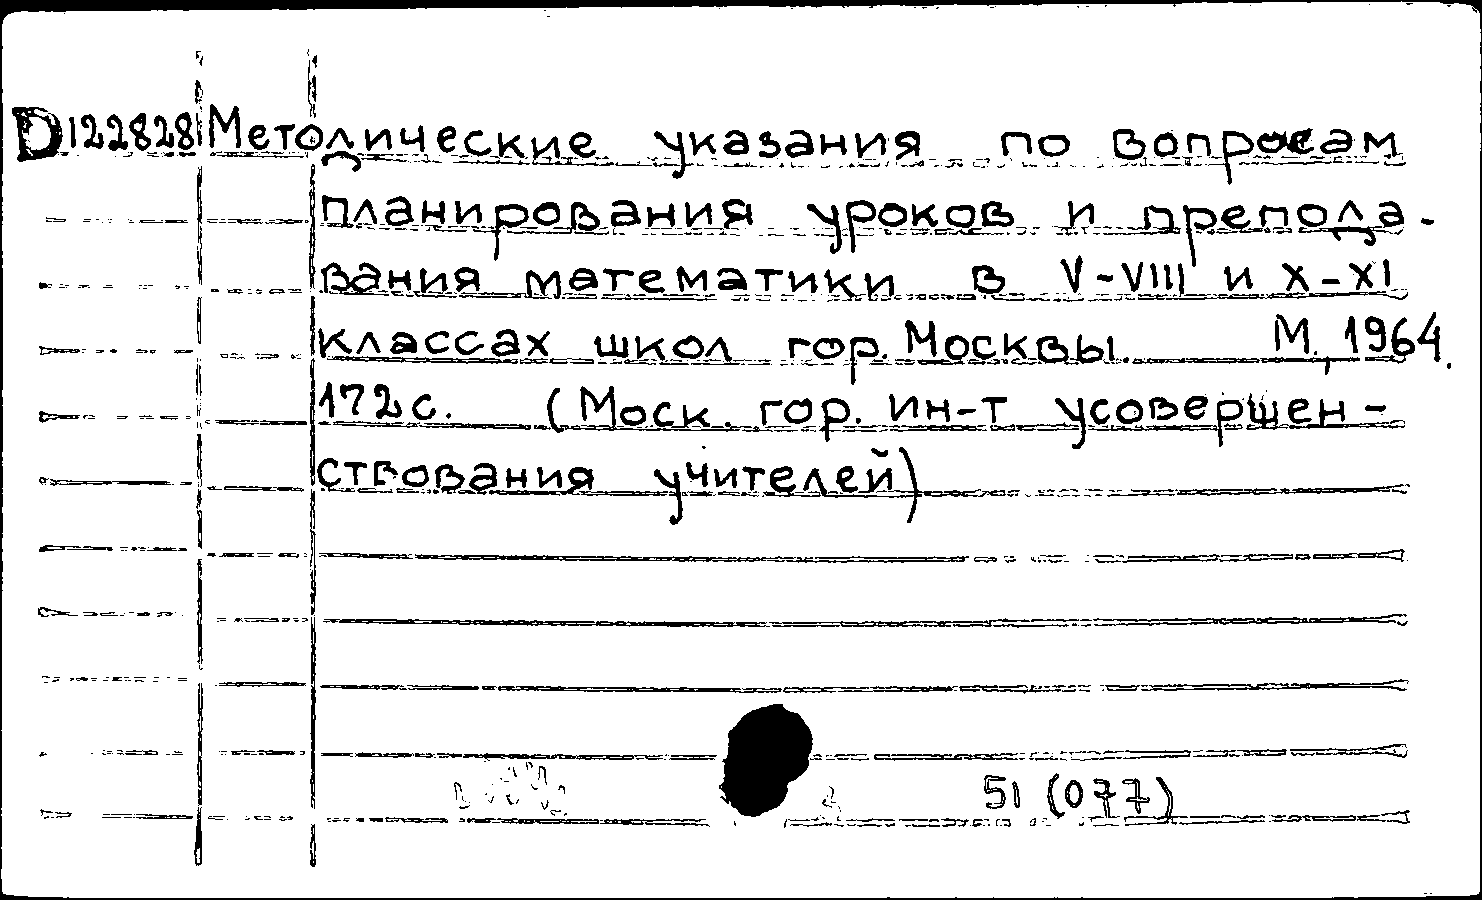 D122828 Методические указания по вопросам
планирования уроков и препода-
вания математики в V-VIII и X-XI
классах школ гор. Москвы. М., 1964.
172 с. (Моск. гор. ин-т усовершен-
ствования учителей)
51 (077)